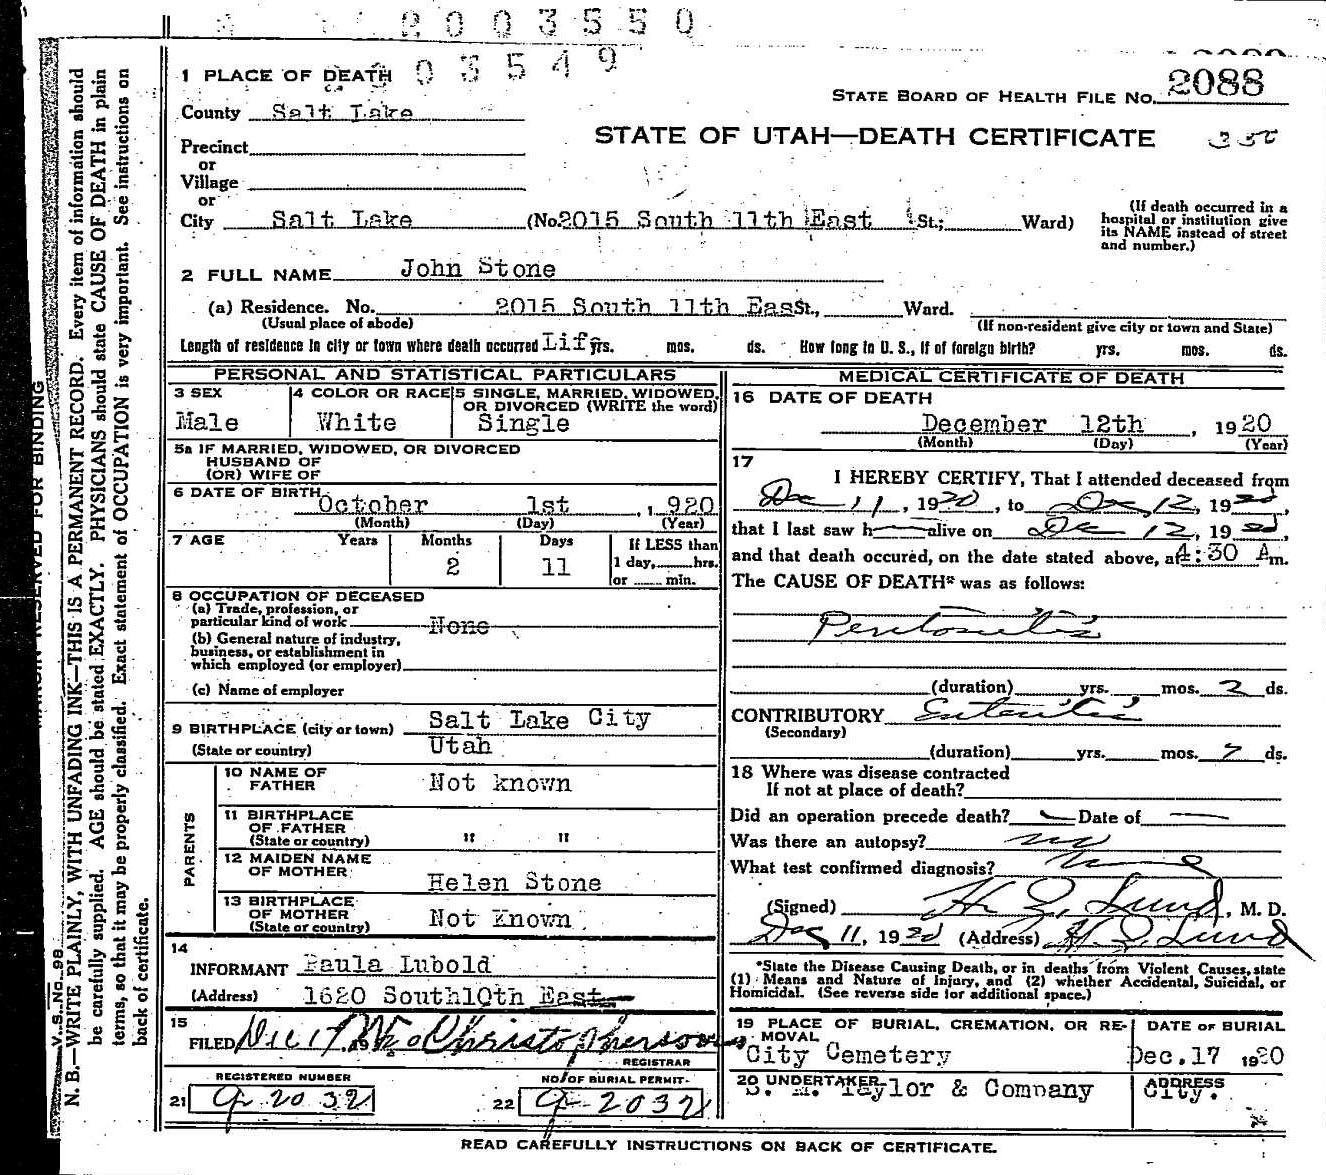 2003550
03549
1 PLACE OF DEATH
STATE BOARD OF HEALTH FILE NO. 2088
County Salt Lake
STATE OF UTAH—DEATH CERTIFICATE 350
Precinct
or
Village
or
City Salt Lake (No. 2015 South 11th East St.; Ward)
(If death occurred in a
hospital or institution give
its NAME instead of street
and number.)
2 FULL NAME John Stone
(a) Residence. No. 2015 South 11th East St., Ward.
(Usual place of abode)
(If non-resident give city or town and State)
Length of residence in city or town where death occurred Life yrs. mos. ds. How long in U. S., if of foreign birth? yrs. mos. ds.
PERSONAL AND STATISTICAL PARTICULARS
3 SEX
Male
4 COLOR OR RACE
White
5 SINGLE, MARRIED, WIDOWED,
OR DIVORCED (WRITE the word)
Single
5a IF MARRIED, WIDOWED, OR DIVORCED
HUSBAND OF
(OR) WIFE OF
6 DATE OF BIRTH
October 1st , 1 920
(Month) (Day) (Year)
7 AGE Years Months Days If LESS than
2 11 1 day, hrs.
or min.
8 OCCUPATION OF DECEASED
(a) Trade, profession, or
particular kind of work None
(b) General nature of industry,
business, or establishment in
which employed (or employer)
(c) Name of employer
9 BIRTHPLACE (city or town) Salt Lake City
(State or country) Utah
PARENTS
10 NAME OF
FATHER Not known
11 BIRTHPLACE
OF FATHER
(State or country) " "
12 MAIDEN NAME
OF MOTHER
Helen Stone
13 BIRTHPLACE
OF MOTHER
(State or country) Not Known
14
INFORMANT Paula Lubold
(Address) 1620 South 10th East
15
FILED Dec 17 Christopherson
REGISTRAR
REGISTERED NUMBER
21 2032
NO. OF BURIAL PERMIT
22 2032
MEDICAL CERTIFICATE OF DEATH
16 DATE OF DEATH
December 12th , 1920
(Month) (Day) (Year)
17
I HEREBY CERTIFY, That I attended deceased from
Dec 11, 1920, to Dec 12, 1920,
that I last saw h alive on Dec 12, 1920,
and that death occured, on the date stated above, at 4:30 A m.
The CAUSE OF DEATH* was as follows:
Peritonitis
(duration) yrs. mos. 2 ds.
CONTRIBUTORY Enteritis
(Secondary)
(duration) yrs. mos. 7 ds.
18 Where was disease contracted
If not at place of death?
Did an operation precede death? — Date of —
Was there an autopsy? no
What test confirmed diagnosis? none
(Signed) Lund, M. D.
Dec 11, 1920 (Address) Lund
*State the Disease Causing Death, or in deaths from Violent Causes, state
(1) Means and Nature of Injury, and (2) whether Accidental, Suicidal, or
Homicidal. (See reverse side for additional space.)
19 PLACE OF BURIAL, CREMATION, OR RE-
MOVAL
City Cemetery
DATE OF BURIAL
Dec. 17 1920
20 UNDERTAKER
S. M. Taylor & Company
ADDRESS
City.
READ CAREFULLY INSTRUCTIONS ON BACK OF CERTIFICATE.
MARGIN RESERVED FOR BINDING
V. S. No. 98
N. B.—WRITE PLAINLY, WITH UNFADING INK—THIS IS A PERMANENT RECORD. Every item of information should
be carefully supplied. AGE should be stated EXACTLY. PHYSICIANS should state CAUSE OF DEATH in plain
terms, so that it may be properly classified. Exact statement of OCCUPATION is very important. See instructions on
back of certificate.